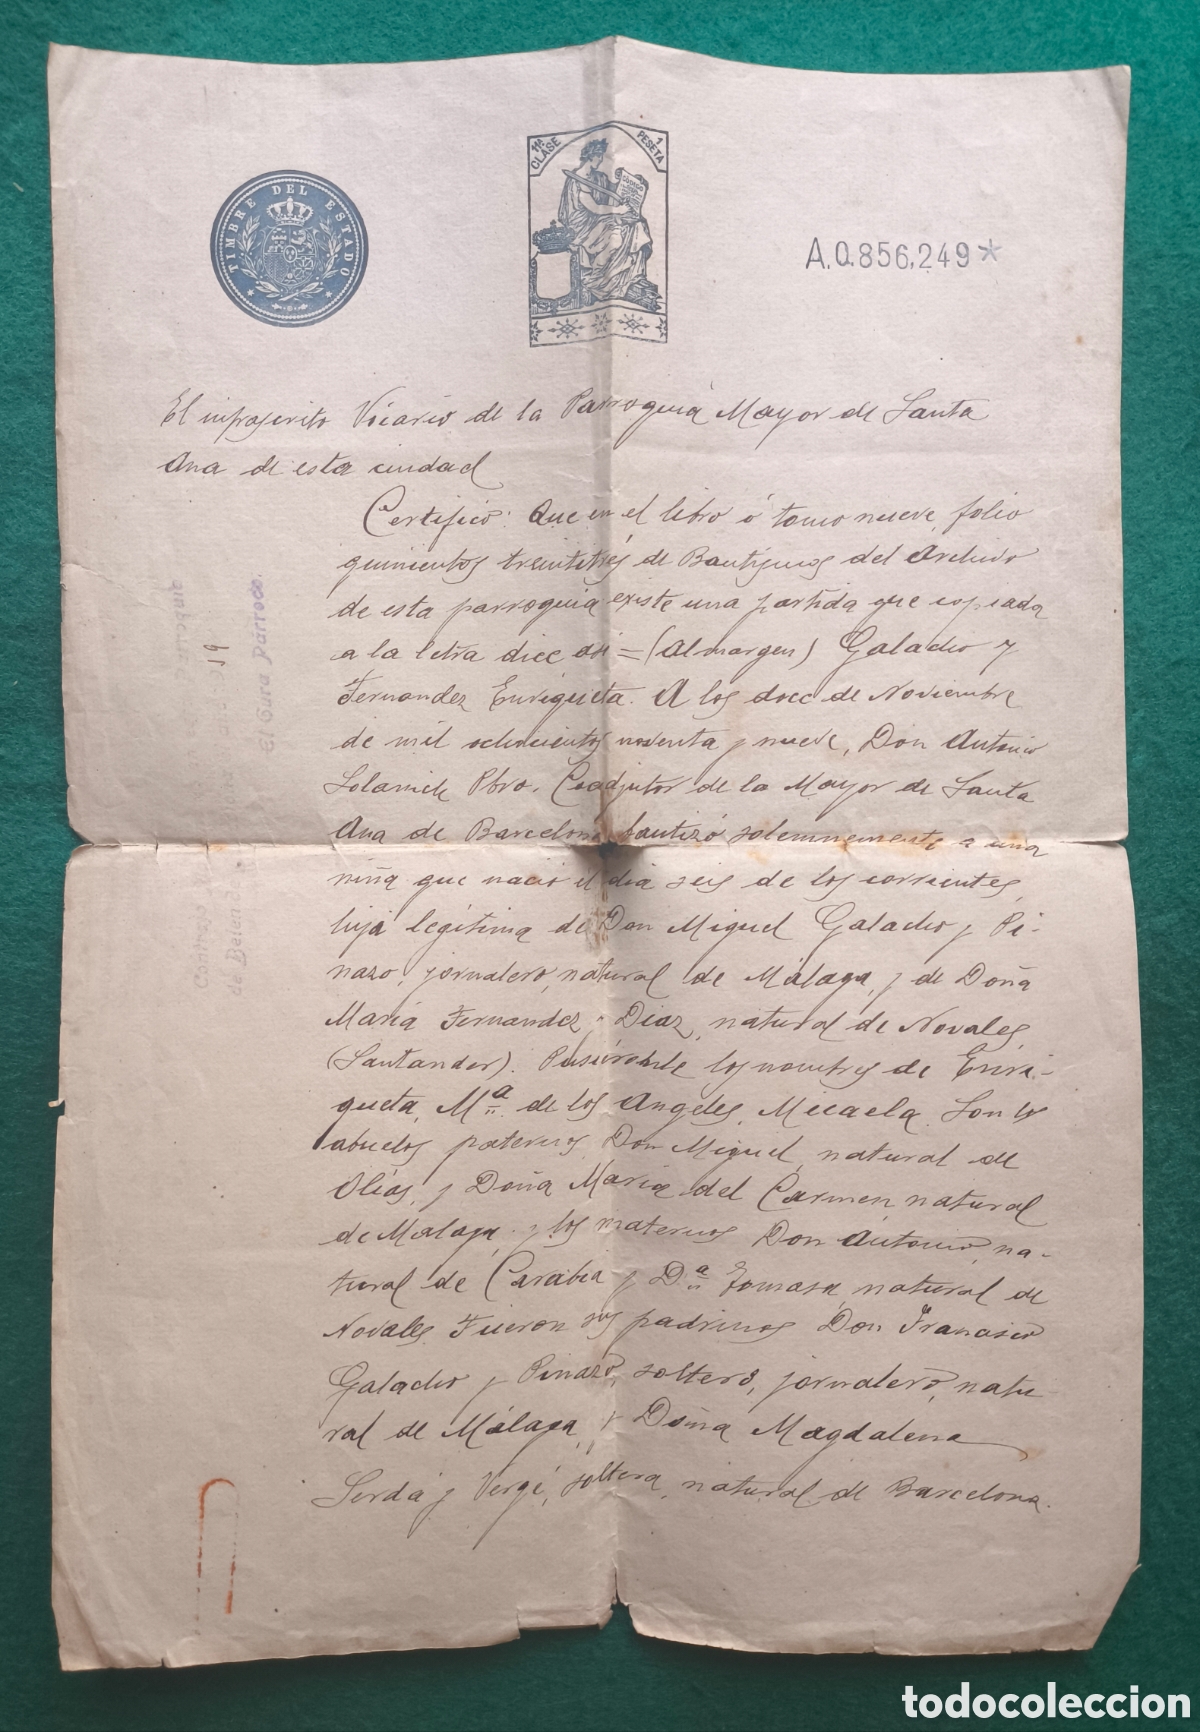 TIMBRE DEL ESTADO
11ª CLASE
1 PESETA
CODIGO
A.0.856,249*
El infrascrito Vicario de la Parroquia Mayor de Santa
Ana de esta ciudad
Certifico: Que en el libro ó tomo nueve, folio
quinientos treintitrés de Bautismos del Archivo
de esta parroquia existe una partida que copiada
a la letra dice así = (Al margen) Galacho y
Fernandez Enriqueta. A los doce de Noviembre
de mil ochocientos noventa y nueve, Don Antonio
Pbro. Coadjutor de la Mayor de Santa
Ana de Barcelona bautizó solemnemente a una
niña que nació el dia seis de los corrientes,
hija legítima de Don Miguel Galacho y Pi-
nazo, jornalero, natural de Málaga, y de Doña
María Fernandez y Diaz, natural de Novales,
(Santander). Pusiéronle los nombres de Enri-
queta, Mª de los Angeles, Micaela. Son los
abuelos paternos Don Miguel, natural de
Olías, y Doña María del Carmen natural
de Malaga y los maternos Don Antonio, na-
tural de y Dª Tomasa, natural de
Novales. Fueron sus padrinos Don Francisco
Galacho y Pinazo, soltero, jornalero, natu-
ral de Málaga, y Doña Magdalena
Serdá y Vergé, soltera, natural de Barcelona.
19
El Cura Párroco.
de Belen
todocoleccion